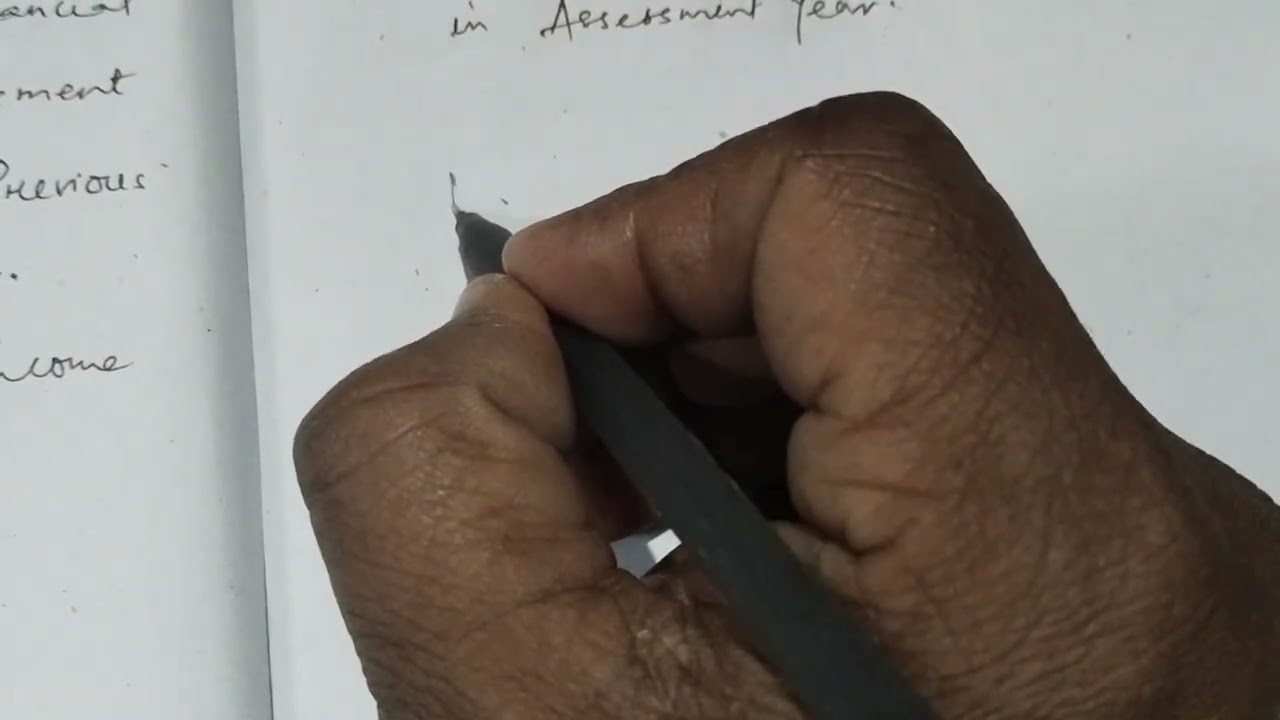 ancial
ement
Previous
.
ncome
in Assessment Year.